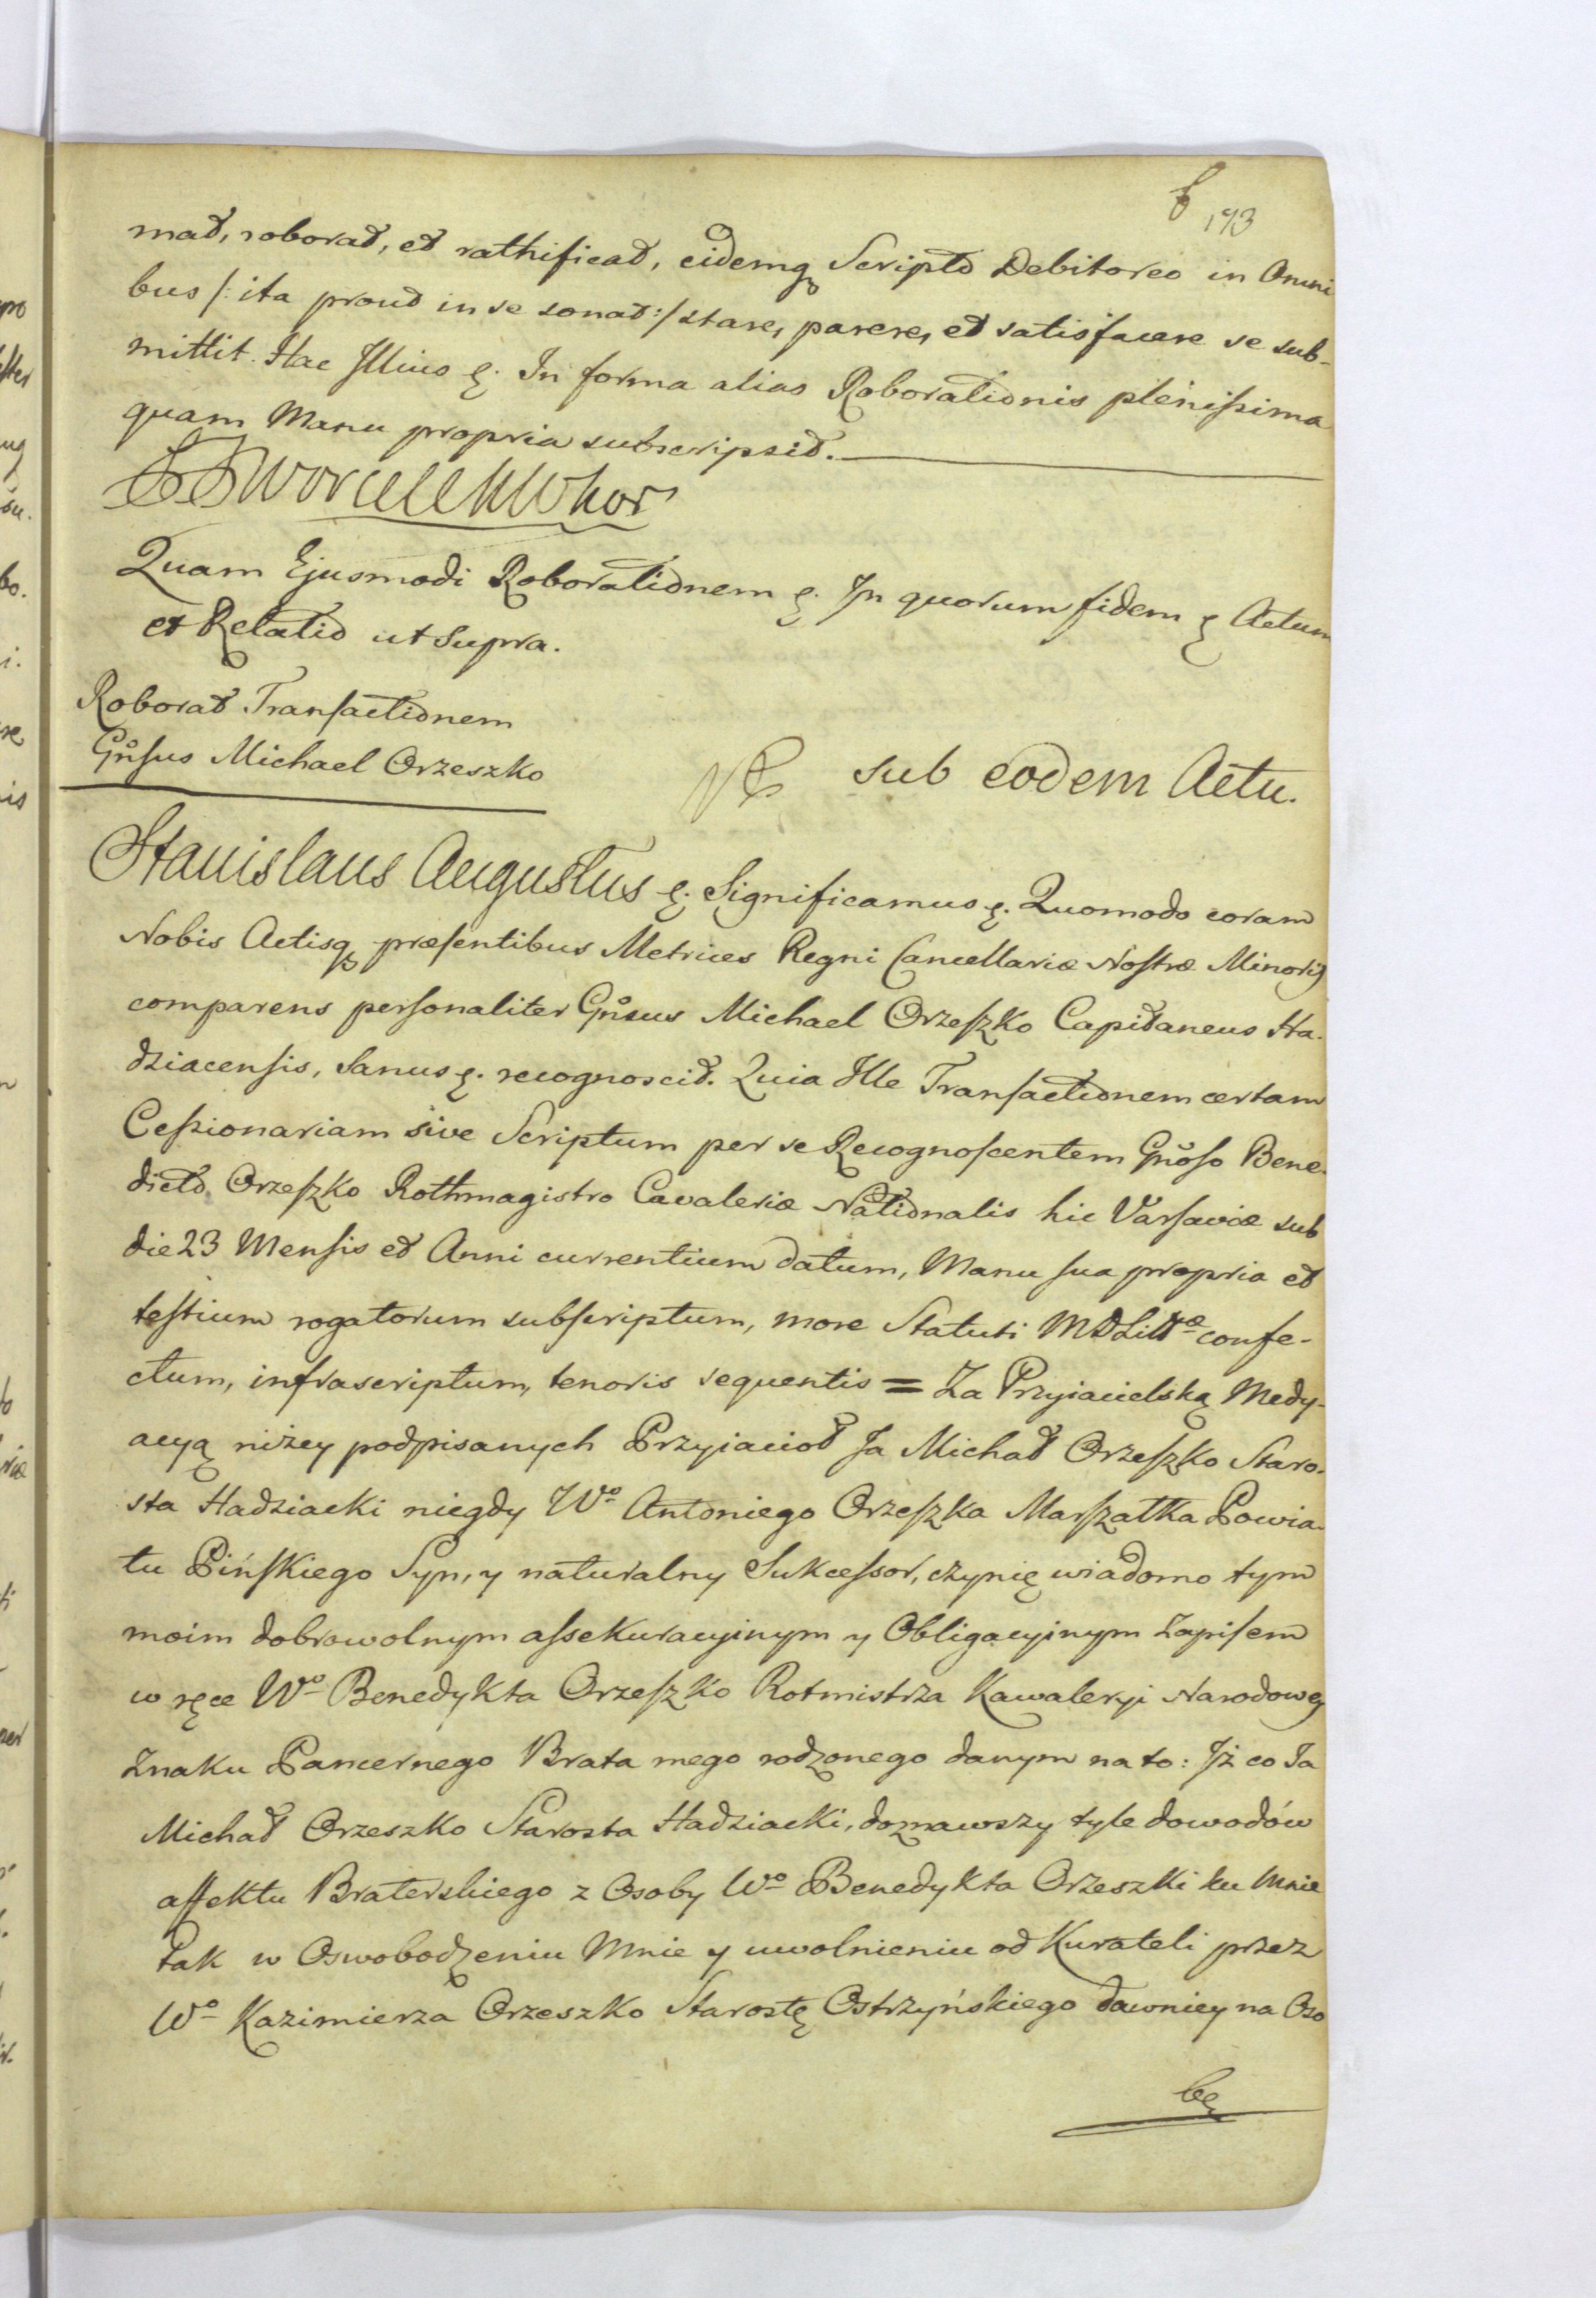 6 193
mat, roborat, et rathificat, eidemq Scripto Debitoreo in Omni
bus /: ita prout in se sonat :/ stare, parere, et satisfacere se sub-
mittit. Hac Illius ę. In forma alias Roborationis plenissima
quam Manu propria subscripsit.
Quam Ejusmodi Roborationem ę. In quorum fidem ę Actum
et Relatio ut Supra.
Roborat Transactionem
Gnsus Michael Orzeszko
sub eodem Actu.
Stanislaus Augustus ę. Significamus ę. Quomodo coram
Nobis Actisq præsentibus Metrices Regni Cancellariæ Nostræ Minoris
comparens personaliter Gnsus Michael Orzeszko Capitaneus Ha-
dziacensis, Sanus ę. recognoscit. Quia Ille Transactionem certam
Cessionariam sive Scriptum per se Recognoscentem Gnoso Bene-
dicto Orzeszko Rothmagistro Cavaleriæ Nationalis hic Varsaviæ sub
die 23 Mensis et Anni currentium datum, Manu sua propria et
testium rogatorum subscriptum, more Statuti MDLittæ confe-
ctum, infrascriptum, tenoris sequentis = Za Przyiacielską Medy-
acyą niżey podpisanych Przyiacioł Ja Michał Orzeszko Staro-
sta Hadziacki niegdy Wo Antoniego Orzeszka Marszałka Powia-
tu Pińskiego Syn, y naturalny Sukcessor, czynię wiadomo tym
moim dobrowolnym assekuracyinym y Obligacyinym Zapisem
w ręce Wo Benedykta Orzeszko Rotmistrza Kawaleryi Narodowey
Znaku Pancernego Brata mego rodzonego danym na to: Iż co Ja
Michał Orzeszko Starosta Hadziacki, doznawszy tyle dowodów
affektu Braterskiego z Osoby Wo Benedykta Orzeszki ku Mnie
tak w Oswobodzeniu Mnie y uwolnieniu od Kurateli przez
Wo Kazimierza Orzeszko Starostę Ostrzyńskiego dawniey na Oso
bę